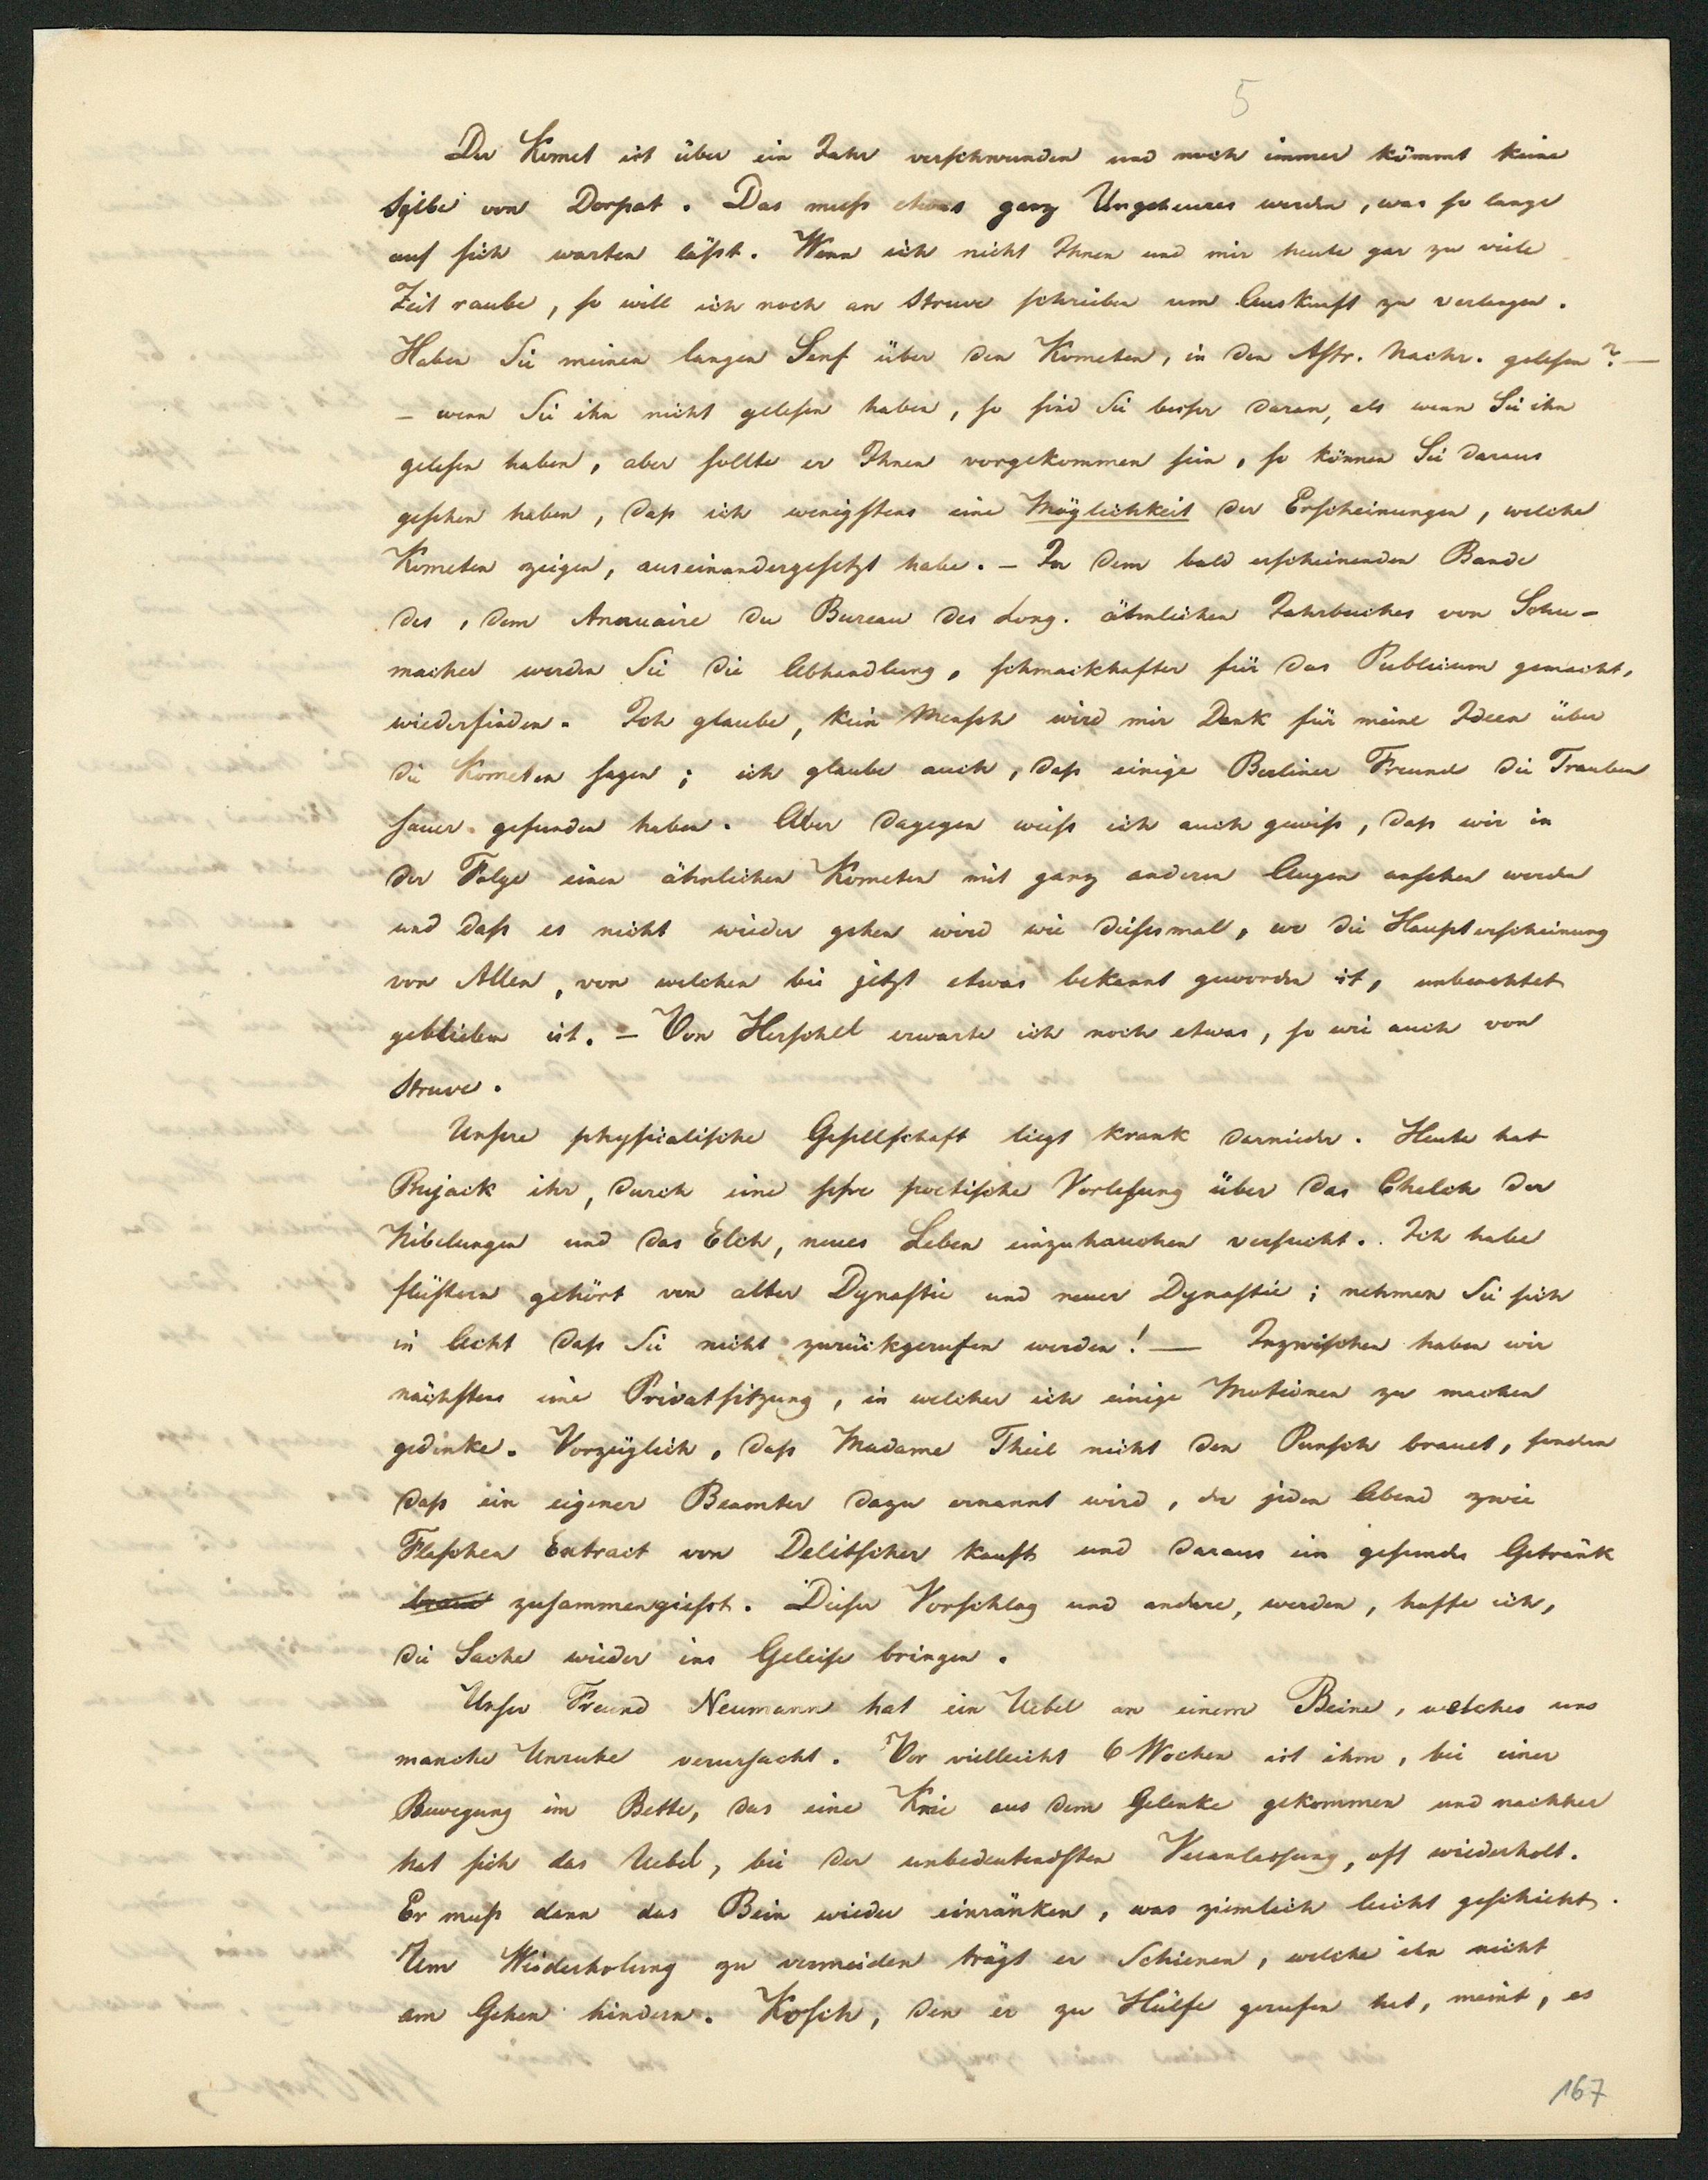 5
Der Komet ist über ein Jahr verschwunden und noch immer kömmt keine
Sylbe von Dorpat. Das muß etwas ganz Ungeheures werden, was so lange
auf sich warten läßt. Wenn ich nicht Ihnen und mir heute gar zu viele
Zeit raube, so will ich noch an Struve schreiben um Auskunft zu verlangen.
Haben Sie meinen langen Senf über den Kometen, in den Astr. Nachr. gelesen? —
— wenn Sie ihn nicht gelesen haben, so sind Sie besser daran, als wenn Sie ihn
gelesen haben, aber sollte er Ihnen vorgekommen sein, so können Sie daraus
gesehen haben, daß ich wenigstens eine Möglichkeit der Erscheinungen, welche
Kometen zeigen, auseinandergesetzt habe. — In dem bald erscheinenden Bande
des, dem Annuaire du Bureau des Long. ähnlichen Jahrbuches von Schu-
macher werden Sie die Abhandlung, schmackhafter für das Publicum gemacht,
wiederfinden. Ich glaube, kein Mensch wird mir Dank für meine Ideen über
die Kometen sagen; ich glaube auch, daß einige Berliner Freunde die Trauben
sauer gefunden haben. Aber dagegen weiß ich auch gewiß, daß wir in
der Folge einen ähnlichen Kometen mit ganz anderen Augen ansehen werden
und daß es nicht wieder gehen wird wie diesesmal, wo die Haupterscheinung
von Allen, von welchen bis jetzt etwas bekannt geworden ist, unbeachtet
geblieben ist. — Von Herschel erwarte ich noch etwas, so wie auch von
Struve.
Unsere physicalische Gesellschaft liegt krank darnieder. Heute hat
Bujack ihr, durch eine sehr poetische Vorlesung über das Chelch der
Nibelungen und das Elch, neues Leben einzuhauchen versucht. Ich habe
flüstern gehört von alter Dynastie und neuer Dynastie; nehmen Sie sich
in Acht daß Sie nicht zurückgerufen werden! — Inzwischen haben wir
nächstens eine Privatsitzung, in welcher ich einige Motionen zu machen
gedenke. Vorzüglich, daß Madame Theil nicht den Punsch brauet, sondern
daß ein eigener Beamter dazu ernannt wird, der jeden Abend zwei
Flaschen Extract von Delitscher kauft und daraus ein gesundes Getränk
zusammengießt. Dieser Vorschlag und andere, werden, hoffe ich,
die Sache wieder ins Geleise bringen.
Unser Freund Neumann hat ein Uebel an einem Beine, welches uns
manche Unruhe verursacht. Vor vielleicht 6 Wochen ist ihm, bei einer
Bewegung im Bette, das eine Knie aus dem Gelenke gekommen und nachher
hat sich das Uebel, bei der unbedeutendsten Veranlassung, oft wiederholt.
Er muß dann das Bein wieder einränken, was ziemlich leicht geschieht.
Um Wiederholung zu vermeiden trägt er Schienen, welche ihn nicht
am Gehen hindern. Kosch, den er zu Hülfe gerufen hat, meint, es
167